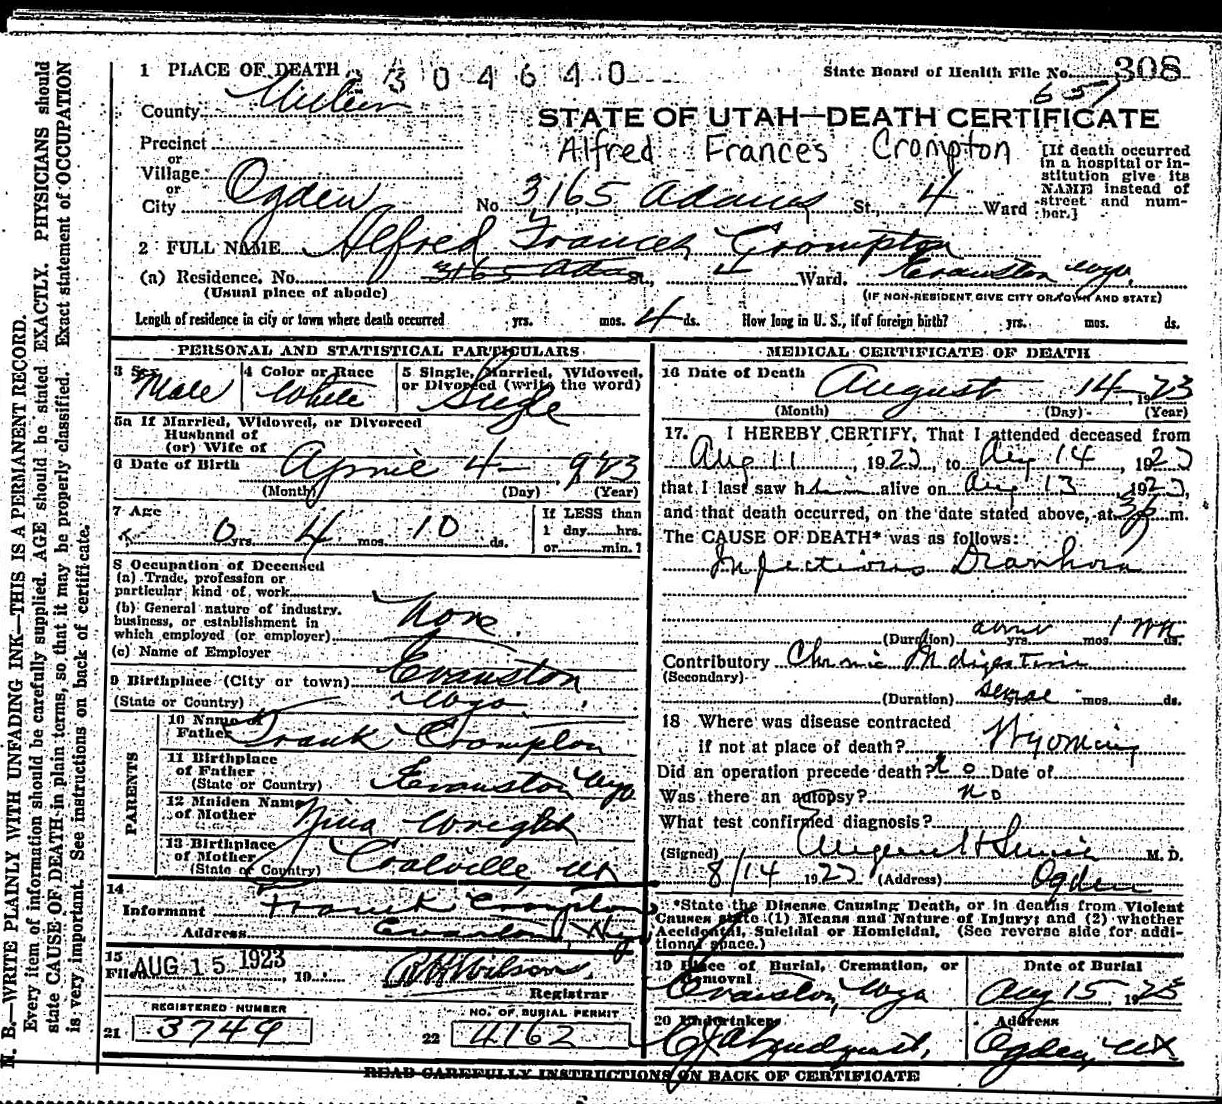 1 PLACE OF DEATH
2304640
State Board of Health File No. 308
651
County
STATE OF UTAH—DEATH CERTIFICATE
Precinct
or
Alfred Frances Crompton
[If death occurred in a hospital or institution give its NAME instead of street and number.]
Village
or
City Ogden No. 3165 Adams St., 4 Ward
2 FULL NAME Alfred Frances Crompton
(a) Residence. No. 3165 Adams St., 4 Ward. Evanston Wyo.
(Usual place of abode) (IF NON-RESIDENT GIVE CITY OR TOWN AND STATE)
Length of residence in city or town where death occurred yrs. mos. 4 ds. How long in U. S., if of foreign birth? yrs. mos. ds.
PERSONAL AND STATISTICAL PARTICULARS
3 Sex Male
4 Color or Race White
5 Single, Married, Widowed, or Divorced (write the word) Single
5a If Married, Widowed, or Divorced
Husband of
(or) Wife of
6 Date of Birth April 4 923
(Month) (Day) (Year)
7 Age 0 yrs. 4 mos. 10 ds.
If LESS than
1 day hrs.
or min. ?
8 Occupation of Deceased
(a) Trade, profession or
particular kind of work
(b) General nature of industry,
business, or establishment in
which employed (or employer) None
(c) Name of Employer
9 Birthplace (City or town) Evanston
(State or Country) Wyo.
PARENTS
10 Name of Father Frank Crompton
11 Birthplace of Father (State or Country) Evanston Wyo
12 Maiden Name of Mother Nina Wright
13 Birthplace of Mother (State or Country) Coalville, Ut
14
Informant Frank Crompton
Address Evanston, Wyo
15
Filed AUG 15 1923, 19
Registrar
REGISTERED NUMBER
21 3749
NO. OF BURIAL PERMIT
22 4162
MEDICAL CERTIFICATE OF DEATH
16 Date of Death August 14 1923
(Month) (Day) (Year)
17. I HEREBY CERTIFY, That I attended deceased from
Aug 11, 1923, to Aug 14, 1923
that I last saw him alive on Aug 13 1923,
and that death occurred, on the date stated above, at 3p m.
The CAUSE OF DEATH* was as follows:
Infectious Diarrhora
(Duration) about yrs. mos. 1 wk ds.
Contributory Chronic Indigestion
(Secondary)
(Duration) mos. ds.
18 Where was disease contracted
if not at place of death? Wyoming
Did an operation precede death? No Date of
Was there an autopsy? No
What test confirmed diagnosis?
(Signed) M. D.
8/14 1923 (Address) Ogden
*State the Disease Causing Death, or in deaths from Violent
Causes state (1) Means and Nature of Injury; and (2) whether
Accidental, Suicidal or Homicidal. (See reverse side for addi-
tional space.)
19 Place of Burial, Cremation, or Removal Evanston, Wyo
Date of Burial Aug 15, 1923
20 Undertaker
Address Ogden, Ut
READ CAREFULLY INSTRUCTIONS ON BACK OF CERTIFICATE
N. B.—WRITE PLAINLY WITH UNFADING INK—THIS IS A PERMANENT RECORD.
Every item of information should be carefully supplied. AGE should be stated EXACTLY. PHYSICIANS should
state CAUSE OF DEATH in plain terms, so that it may be properly classified. Exact statement of OCCUPATION
is very important. See instructions on back of certificate.